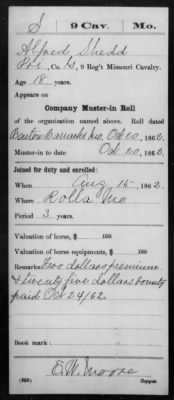 S | 9 Cav. | Mo.
Alfred Shedd
Pvt., Co. , 9 Reg't Missouri Cavalry.
Age 18 years.
Appears on
Company Muster-in Roll
of the organization named above. Roll dated
Benton Barracks Mo, Oct 20, 1862.
Muster-in to date Oct 20, 1862.
Joined for duty and enrolled:
When Aug 15, 1862.
Where Rolla Mo
Period 3 years.
Valuation of horse, $ 100
Valuation of horse equipments, $ 100
Remarks: Two dollars premium
& twenty five dollars bounty
paid Oct 24/62.
Book mark:
E.W. Moore
Copyist.